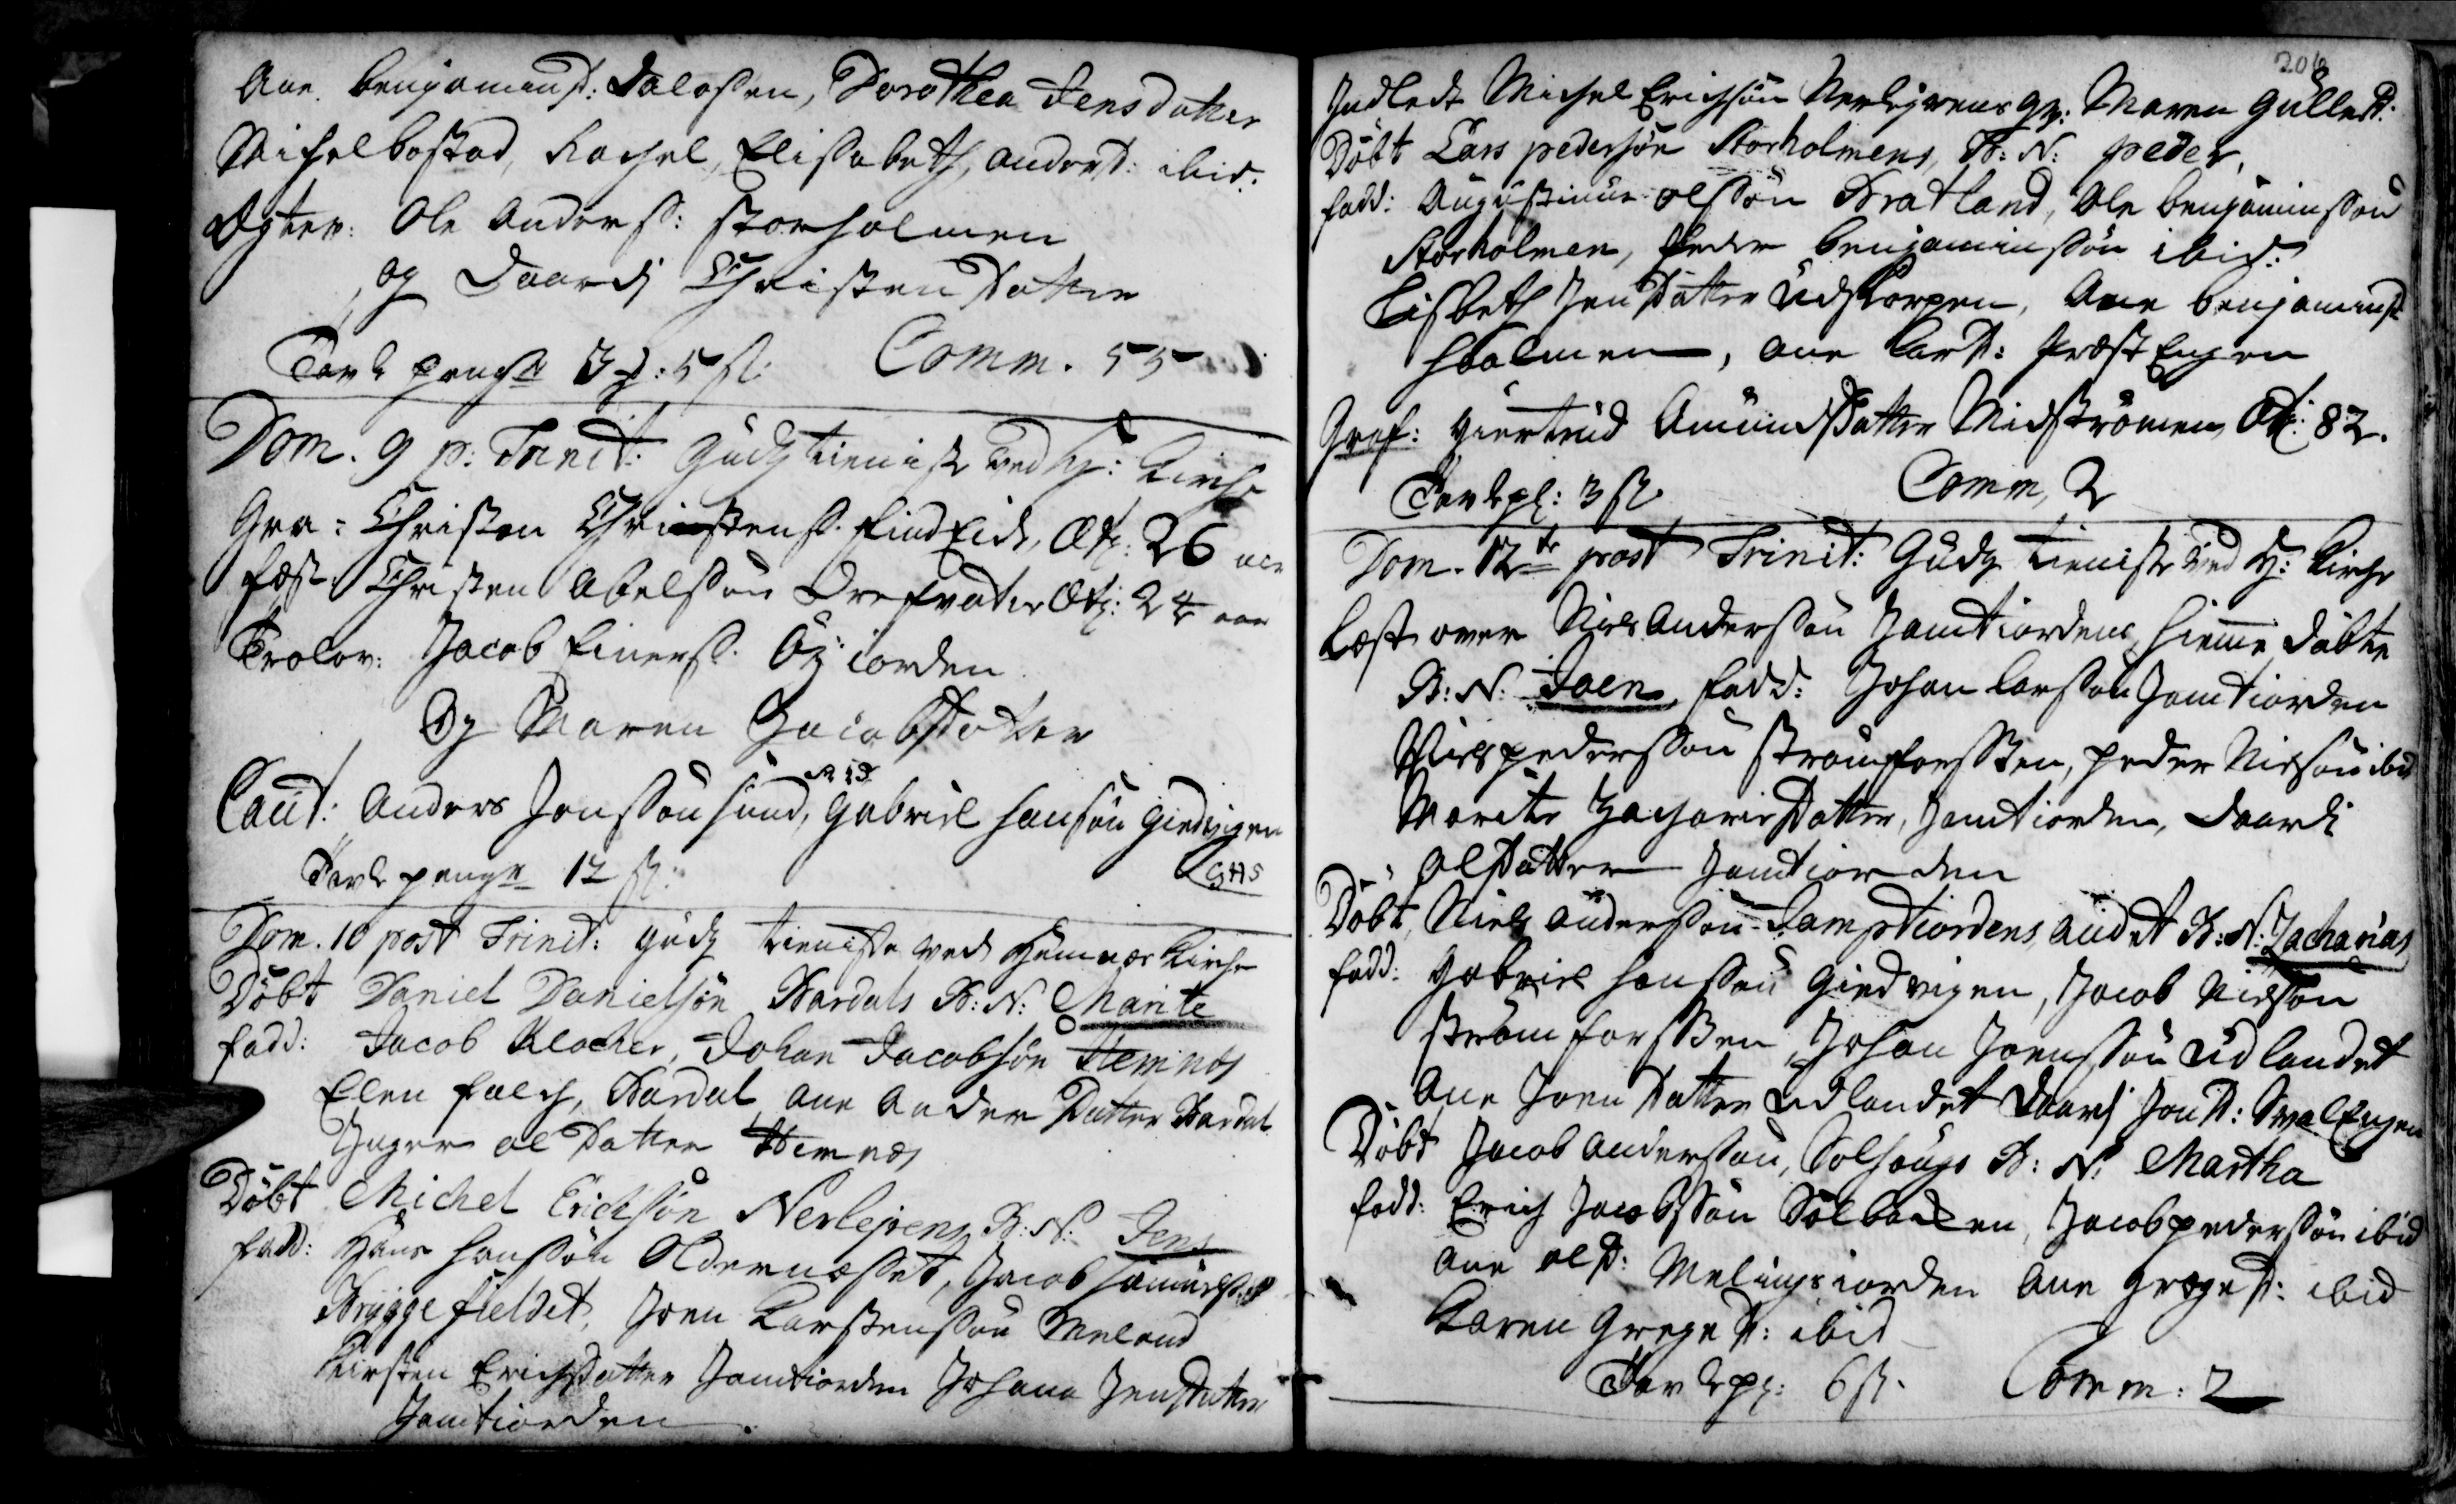 Ane benjaminsd: Dalosen, Dorothea Jensdatter
Michelbostad, Rachel, Elisabeth, Andersd: ibid:
Egtev: Ole Anders: Storholmen
og Daardj Christendatter
Tavle penge 3 : 5 s: Comm. 55
Dom. 9 p: Trinit: Gudz tieniste ved H: Kirche
Gra: Christen Christens. findEide, Æt: 26 aar
fæst. Christen Abelsøn Æt: 24 aar
Trolov: Jacob Einers.
Og Maren Jacobsdatter
Caut: Anders Jonssøn Sund, Gabriel Hansøn Giedvigen
GHS
Tavle penge 12 s:
Dom. 10 post Trinit: gudz tieniste ved Hemnæs Kirche
Døbt Daniel Danielsøn Bardals B: N: Marite
fadd: Jacob Klocher, Johan Jacobsøn Hemnæs
Elen falch, Bardal, Ane Andersdatter Bardal
Inger olsdatter Hemnæs
Døbt Michel Erichsøn Nerlejrens B: N: Jens
fadd: Hans Hanssøn Oldernæsset, Jacob Samuels:
Bryggefieldet, Joen Karstenssøn Meland
Kirsten Erichsdatter Jamtiorden Johana Jensdatter
Jamtiorden
206
Indledt Michel Erichsøn Nerlejrens Qv: Maren Gulles d:
Døbt Lars pedersøn Storholmens, B: N: peder,
fadd: Augustinus olssøn Bratland, Ole benjaminssøn
Storholmen, peder benjaminssøn ibid:
Lisbeth Jensdatter Udskarpen, Ane benjaminsd
Hholmen, Ane Larsd: PræstEngen
Graf: Giertrud Amundsdatter Midstrømen Æt: 82.
Tavlep: 3 s. Comm, 2
Dom. 12te post Trinit: Gudz tieniste ved H: Kirche
Læst over Niels Anderssøn Jamtiordens hieme døbte
B: N: Joen, fadd: Johan Larssøn Jamtiorden
Niels pederssøn Strømforssen, peder Nielsøn ibid
Marite Zachariesdatter, Jamtiorden, Daardi
olsdatter Jamtiorden
Døbt, Niels Anderssøn Jamptiordens andet B: N: Zacharias
fadd: Gabriel Hanssøn Giedvigen, Jacob Nielsøn
Strømforssen, Johan Joenssøn Udlandet
Ane Joensdatter Udlandet Daardj Jonsd: SvalEngen
Døbt Jacob Anderssøn, Solhougs B: N: Martha
fadd: Erich Jacobssøn Solbacken, Jacob pederssøn ibid
Ane olsd: Melingsiorden Ane Gregesd: ibid
Karen Gregesd: ibid
Tavlep: 6 s. Comm: 2